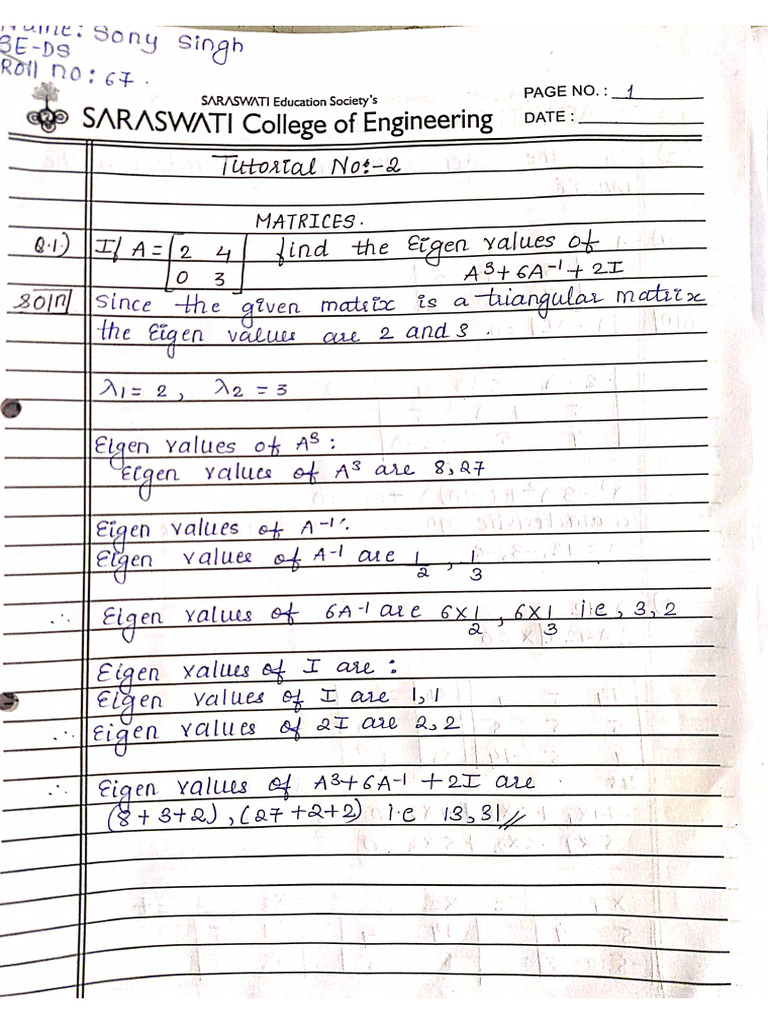 Name: Sony Singh
SE-DS
Roll no: 67.
SARASWATI Education Society's
SARASWATI College of Engineering
PAGE NO. : 1
DATE :
Tutorial No:-2
MATRICES.
Q.1.) If A = [2 4 find the Eigen values of
0 3] A³+6A-1+2I
Soln Since the given matrix is a triangular matrix
the Eigen values are 2 and 3.
λ1 = 2, λ2 = 3
Eigen values of A³:
Eigen values of A³ are 8,27
Eigen values of A-1:
Eigen values of A-1 are 1/2, 1/3
∴ Eigen values of 6A-1 are 6×1/2, 6×1/3 i.e, 3, 2
Eigen values of I are:
Eigen values of I are 1,1
∴ Eigen values of 2I are 2,2
∴ Eigen values of A³+6A-1+2I are
(8+3+2), (27+2+2) i.e 13, 31//